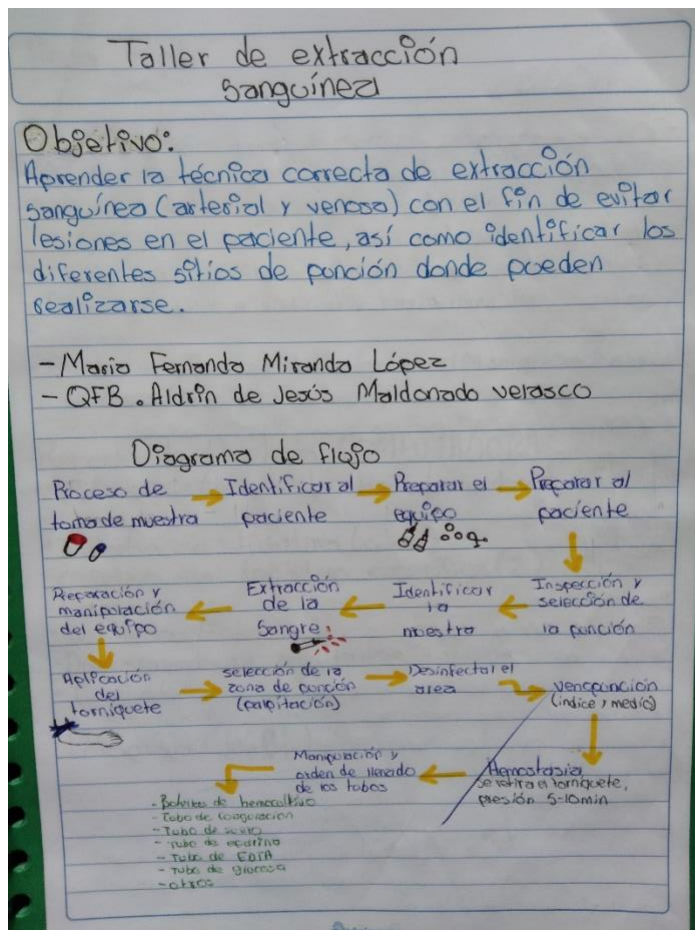 Taller de extracción
sanguínea
Objetivo:
Aprender la técnica correcta de extracción
sanguínea (arterial y venosa) con el fin de evitar
lesiones en el paciente, así como identificar los
diferentes sitios de punción donde pueden
realizarse.
- Maria Fernanda Miranda López
- QFB. Aldrin de Jesús Maldonado Velasco
Diagrama de flujo
Proceso de
toma de muestra
Identificar al
paciente
Preparar el
equipo
Preparar al
paciente
Inspección y
selección de
la punción
Identificar
la
muestra
Extracción
de la
Sangre
Preparación y
manipulación
del equipo
Aplicación
del
torniquete
selección de la
zona de punción
(palpitación)
Desinfectar el
area
venopunción
(indice y medio)
Hemostasia
se retira el torniquete,
presión 5-10min
Manipulación y
orden de llenado
de los tubos
- Botellas de hemocultivo
- Tubo de coagulación
- Tubo de suero
- Tubo de
- Tubo de EDTA
- Tubo de glucosa
- otros